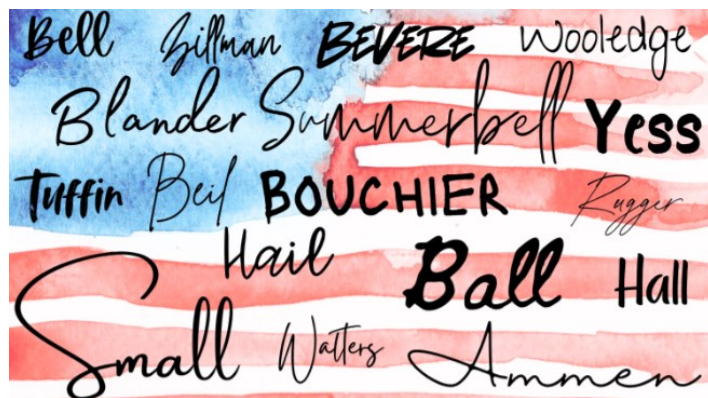 Bell Zillman BEVERE Wooledge
Blander Summerbell Yess
Tuffin Beil BOUCHIER Rugger
Hail Ball Hall
Small Watters Ammen